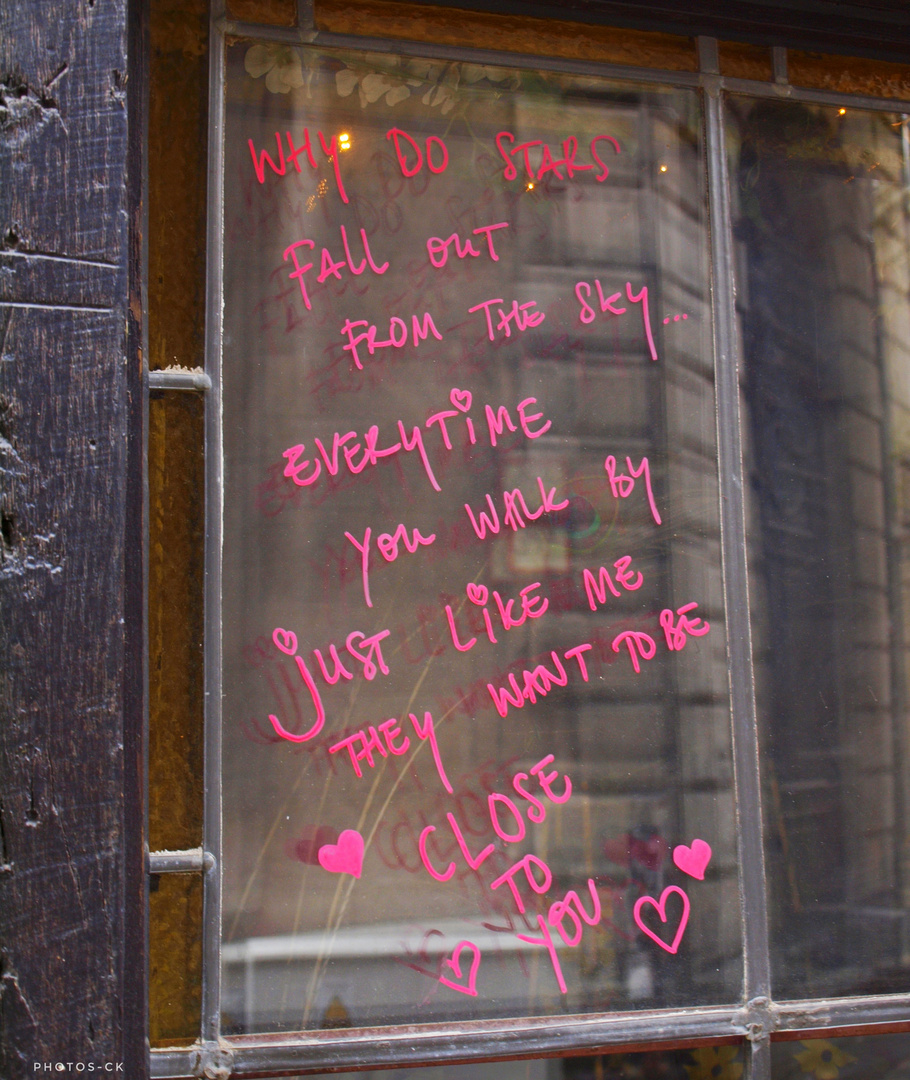 WHY DO STARS
FALL OUT
FROM THE SKY...
EVERYTIME
YOU WALK BY
JUST LIKE ME
THEY WANT TO BE
CLOSE
TO
YOU
PHOTOS-CK